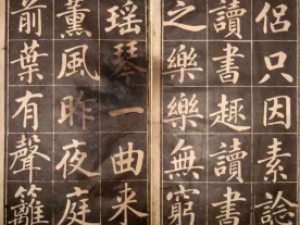 侶只因素諗
讀書趣讀書
之樂樂無窮
瑤琴一曲来
薰風昨夜庭
前葉有聲籬